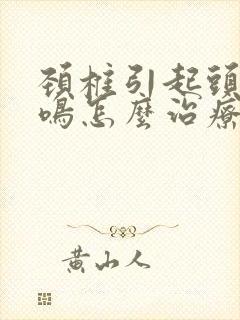 頚椎引起頭
鳴怎麼治療
黃山人